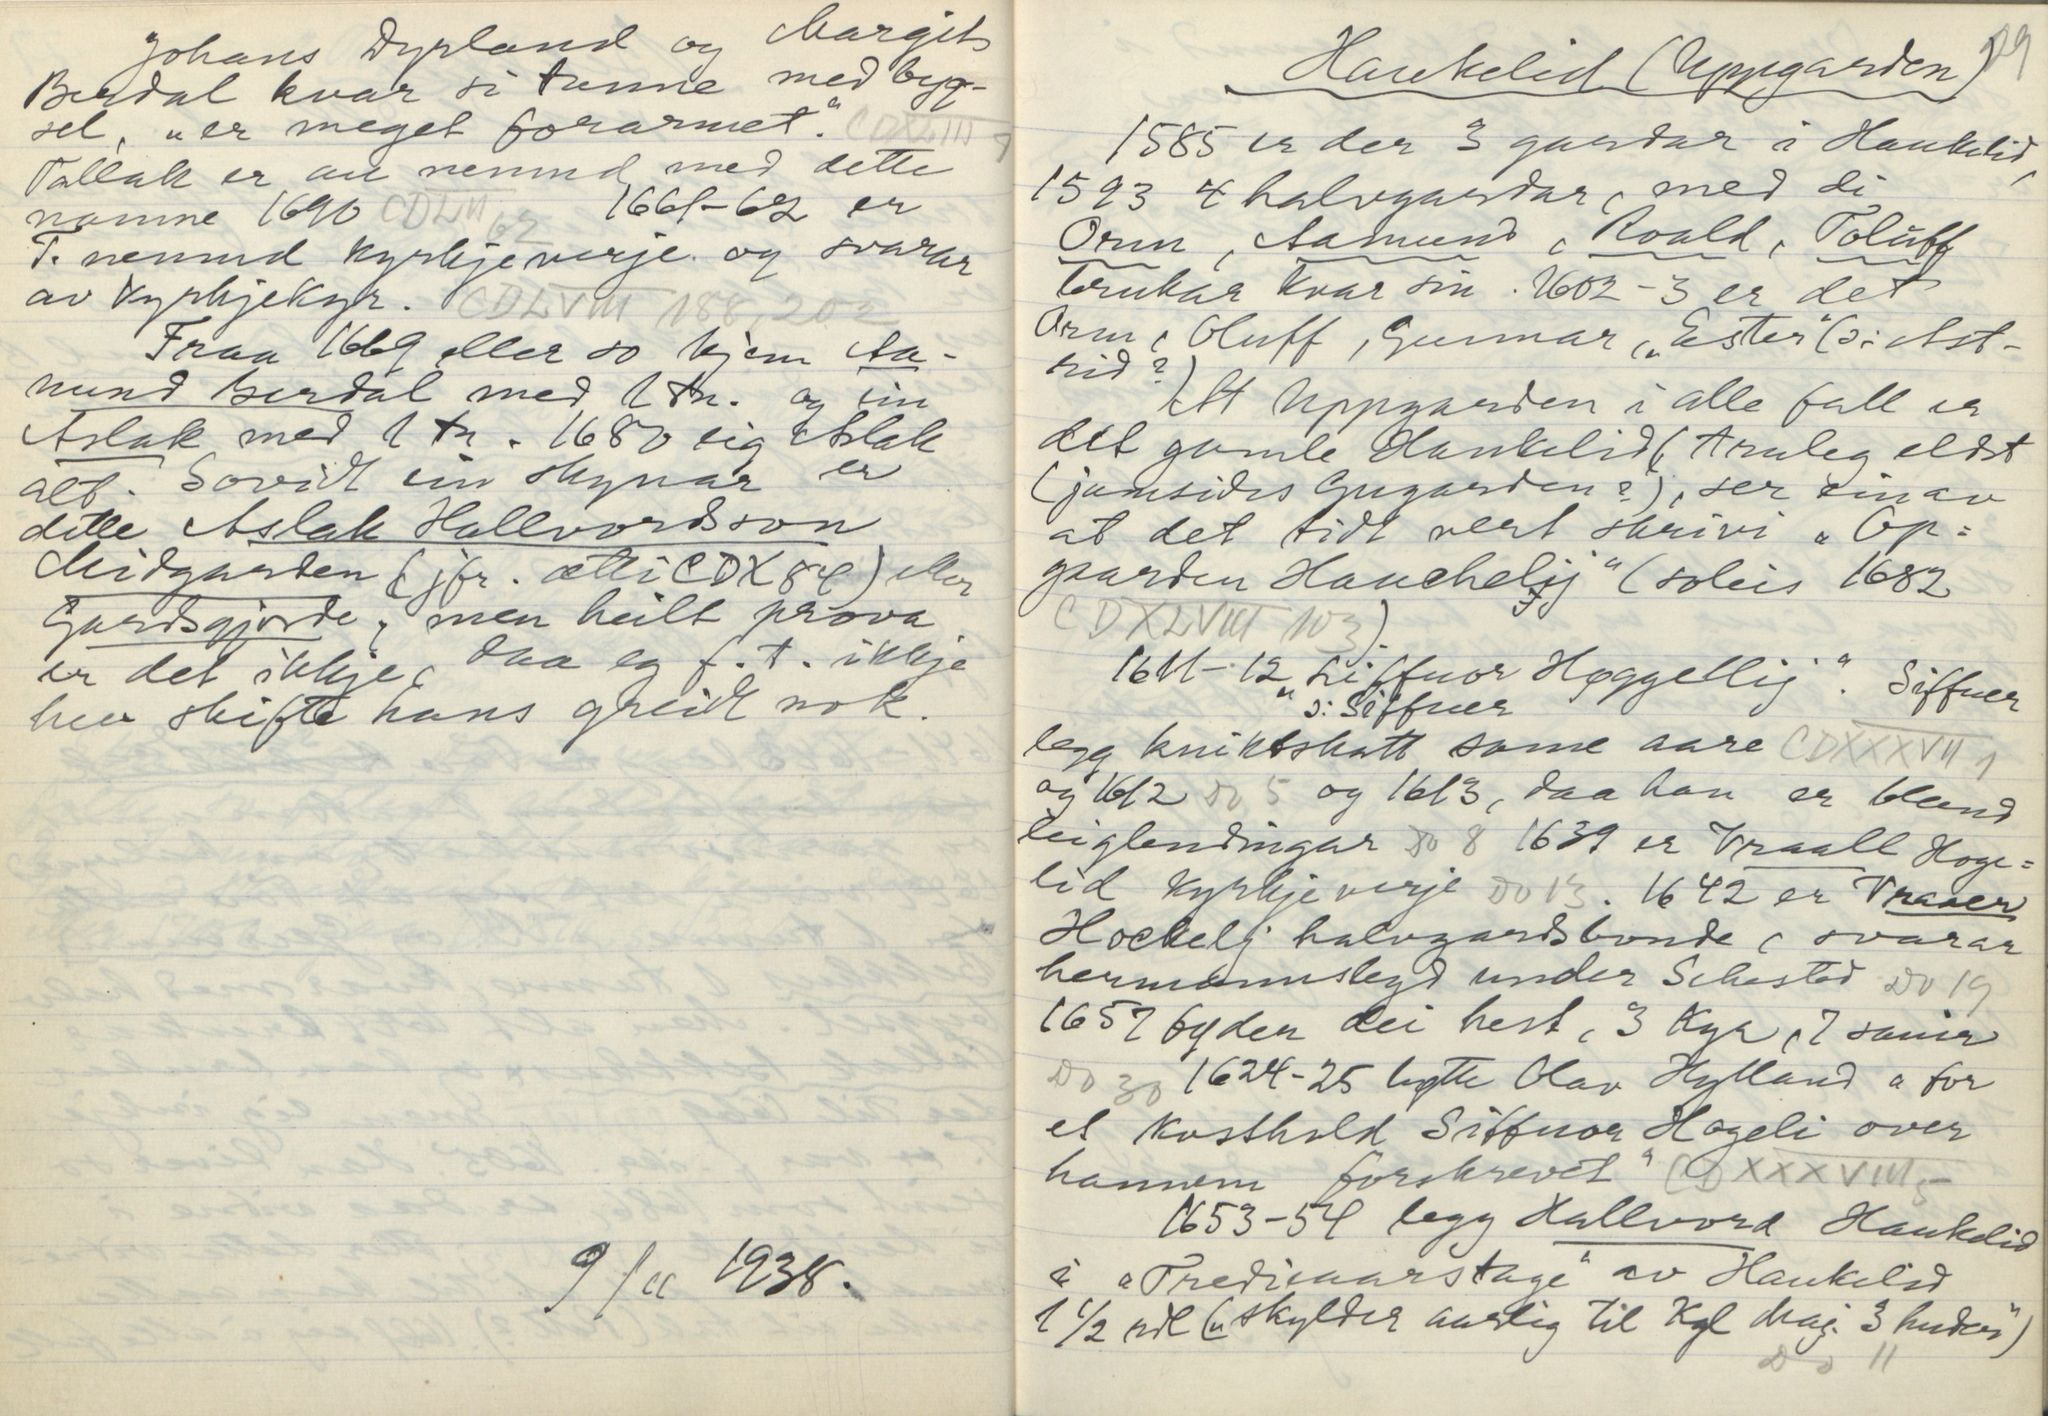 Johans Dyrland og Margits
Berdal kvar si tunne med byg-
sel, „er meget forarmet." CDXLIII 9
Tallak er au nemnd med dette
namne 1690 CDLII 62 1661-62 er
T. nemnd kyrkjeverje og svarar
av kyrkjekyr. CDLVIII 188, 202
Fraa 1669 eller so kjem Aa-
mund Berdal med 1 tn. og ein
Aslak med 1 tn. 1680 eig Aslak
alt. Sovidt ein skynar er
dette Aslak Hallvordsson
Midgarden (jfr. ætti CDX 84) eller
Gardsgjorde, men heilt prova
er det ikkje, daa eg f. t. ikkje
hev skifte hans greidt nok.
9/11 1938.
99
Haukelid (Uppgarden)
1585 er der 3 gardar i Haukelid,
1593 4 halvgardar, med di
Orm, Aamund, Roald, Toluff
brukar kvar sin. 1602-3 er det
Orm, Oluff, Gunnar, „Ester" (ɔ: Ast-
rid?)
At Uppgarden i alle fall er
det gamle Haukelid, truleg eldst
(jamsides Gugarden?), ser ein av
at det tidt vert skrivi „Op=
gaarden Hauchelij" (soleis 1682
CDXLVIII 103).
1611-12 „Liffuor Høggellij". Siffuer
ɔ: Siffuer
legg kniktskatt same aare CDXXXVII 1
og 1612 Do 5 og 1613, daa han er bland
leiglendingar Do 8 1639 er Vraall Hoge=
lid kyrkjeverje Do 13. 1642 er Vraaer
Hockelj halvgardsbonde, svarar
hermannslegd under Sehested Do 19
1657 fyder dei hest, 3 kyr, 7 sauer
Do 30 1624-25 bytte Olav Hylland „for
et kosthold Siffuor Hogeli over
hannem forskrevet" CDXXXVIII 5
1653-54 legg Hallvord Haukelid
i „Tredieaarstage" av Haukelid
1 1/2 rdl („skylder aarlig til Kgl Maj. 3 huder")
Do 11